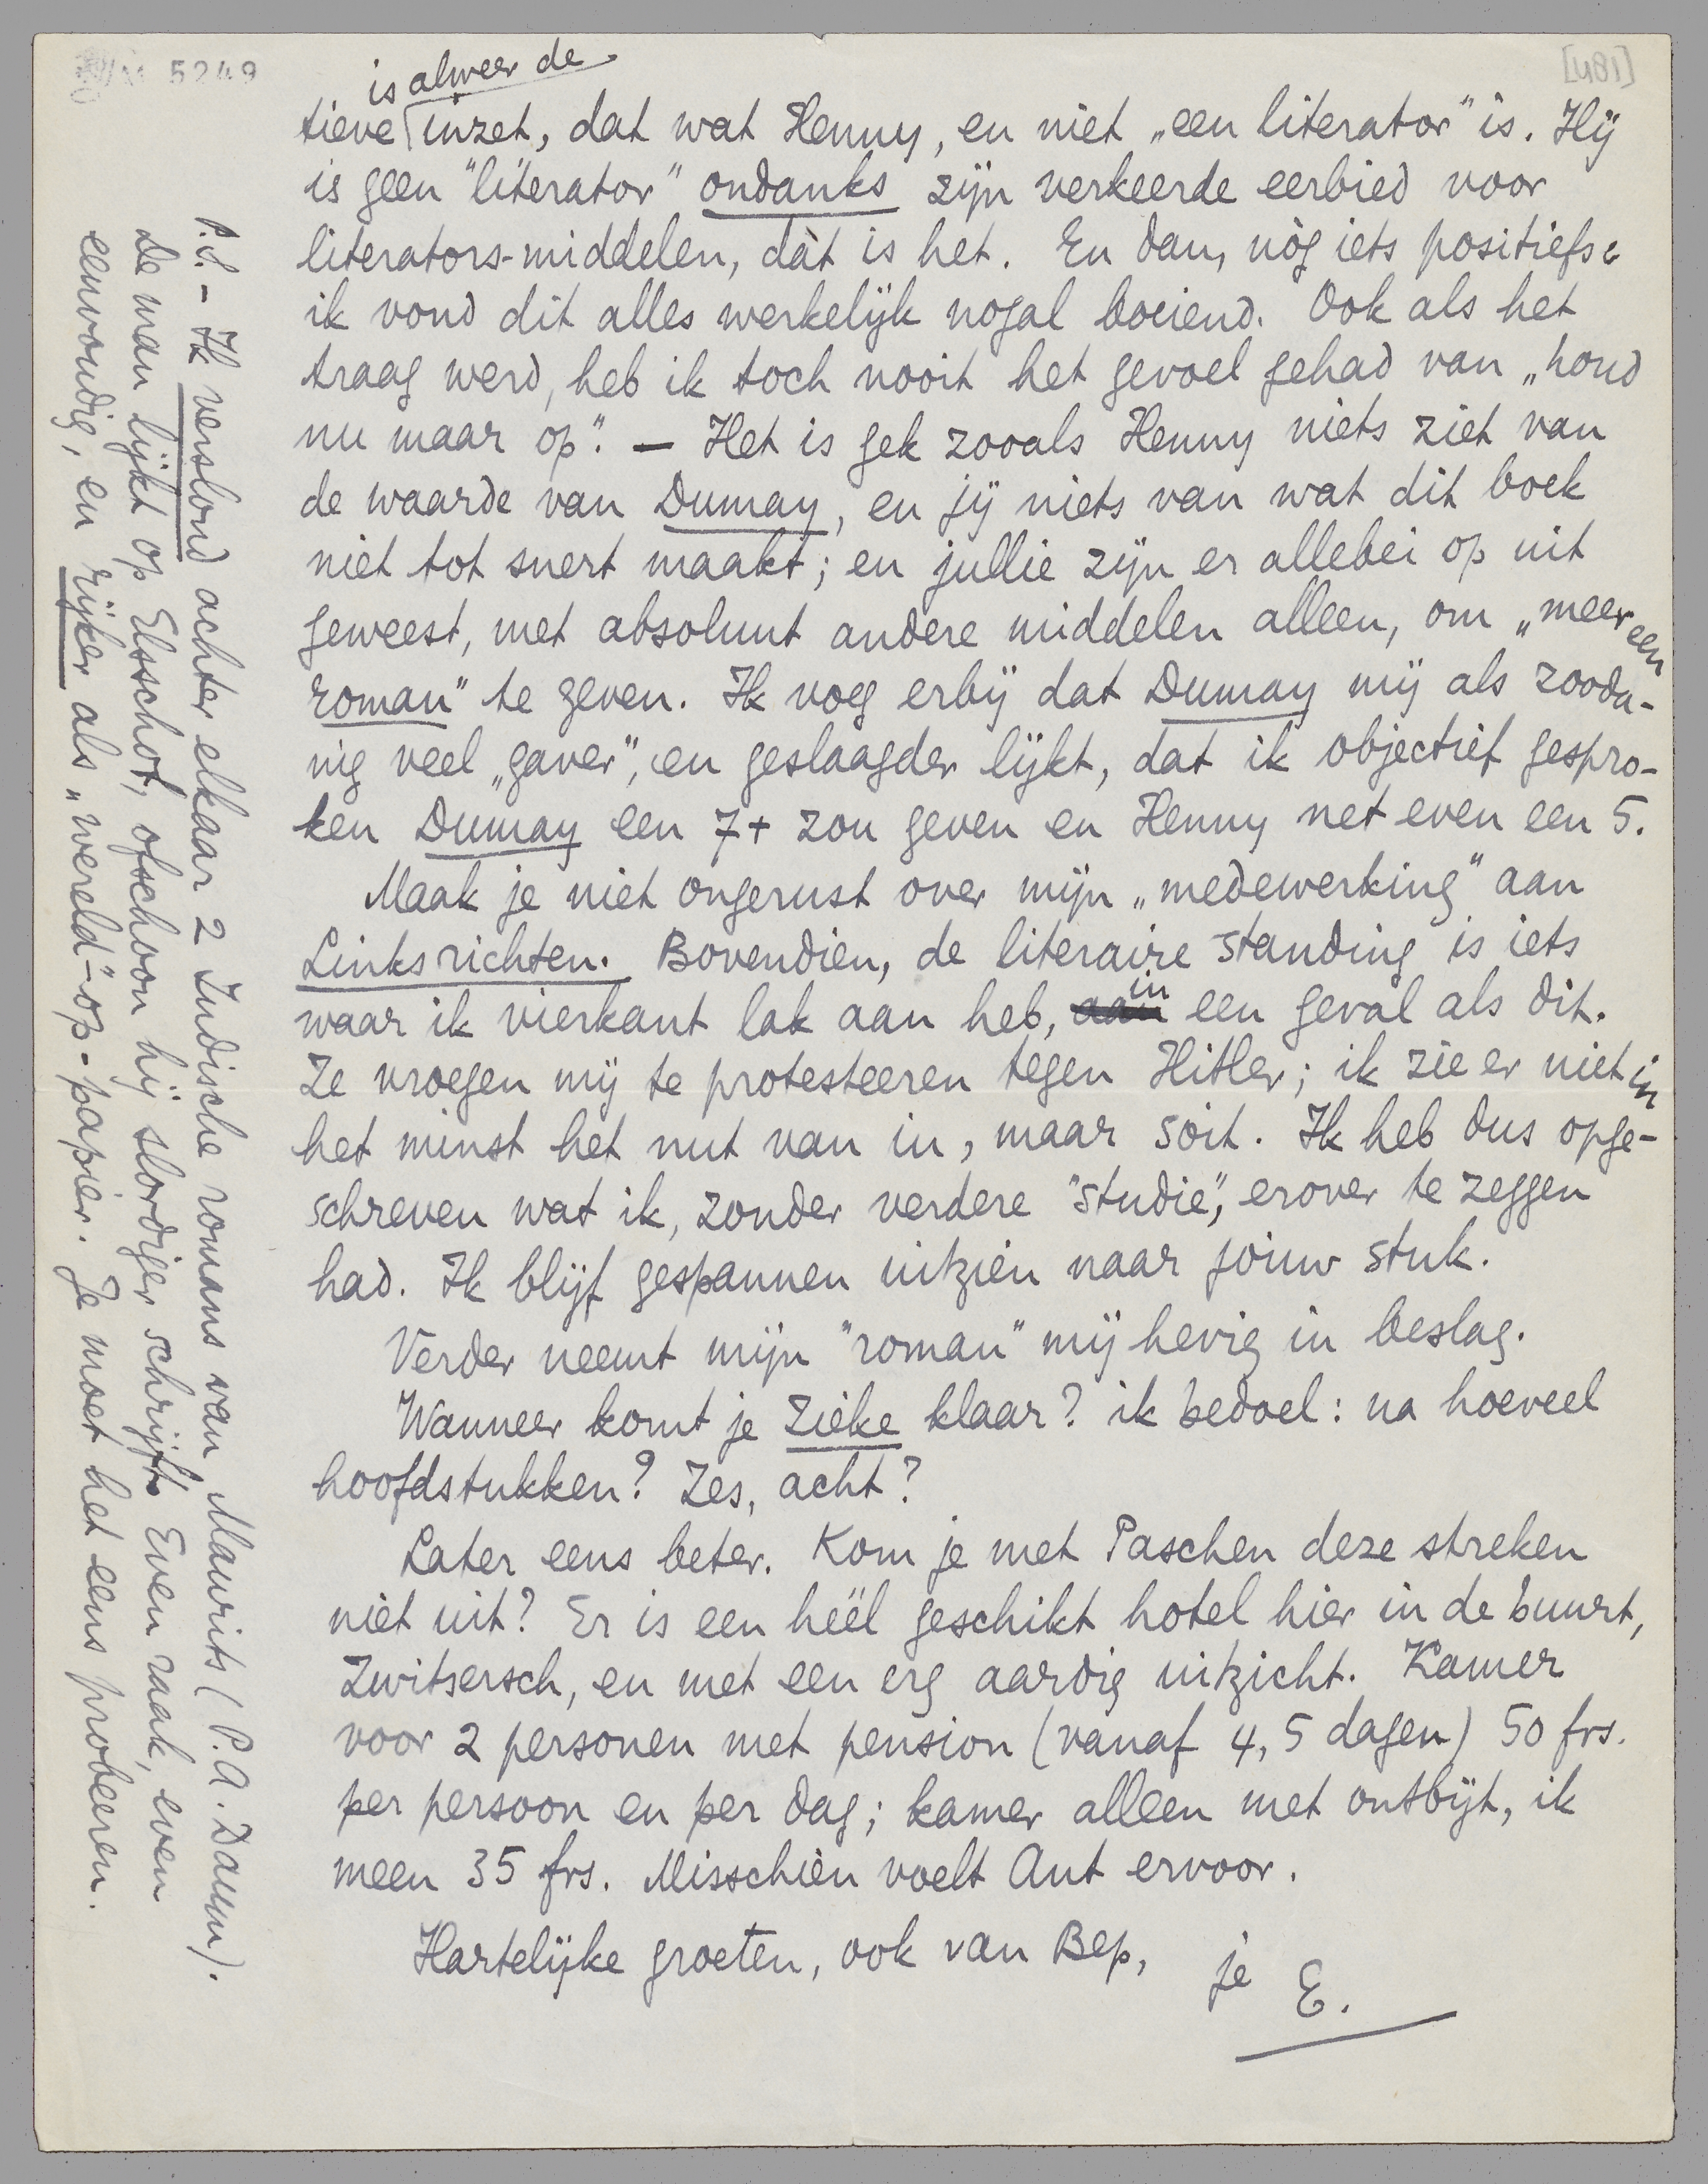 M 5249
[481]
is alweer de
tieve inzet, dat wat Henny, en niet „een literator" is. Hij
is geen "literator" ondanks zijn verkeerde eerbied voor
literators-middelen, dàt is het. En dan, nòg iets positiefs:
ik vond dit alles werkelijk nogal boeiend. Ook als het
traag werd, heb ik toch nooit het gevoel gehad van „houd
nu maar op". — Het is gek zooals Henny niets ziet van
de waarde van Dumay, en jij niets van wat dit boek
niet tot snert maakt; en jullie zijn er allebei op uit
geweest, met absoluut andere middelen alleen, om „meer een
roman" te geven. Ik voeg erbij dat Dumay mij als zooda-
nig veel „gaver", en geslaagder lijkt, dat ik objectief gespro-
ken Dumay een 7+ zou geven en Henny net even een 5.
Maak je niet ongerust over mijn „medewerking" aan
Links richten. Bovendien, de literaire standing is iets
waar ik vierkant lak aan heb, aan in een geval als dit.
Ze vroegen mij te protesteeren tegen Hitler; ik zie er niet in
het minst het nut van in, maar soit. Ik heb dus opge-
schreven wat ik, zonder verdere "studie", erover te zeggen
had. Ik blijf gespannen uitzien naar jouw stuk.
Verder neemt mijn "roman" mij hevig in beslag.
Wanneer komt je Zieke klaar? ik bedoel: na hoeveel
hoofdstukken? Zes, acht?
Later eens beter. Kom je met Paschen deze streken
niet uit? Er is een héél geschikt hotel hier in de buurt,
Zwitsersch, en met een erg aardig uitzicht. Kamer
voor 2 personen met pension (vanaf 4, 5 dagen) 50 frs.
per persoon en per dag; kamer alleen met ontbijt, ik
meen 35 frs. Misschien voelt Ant ervoor.
Hartelijke groeten, ook van Bep,
je E.
P.S. - Ik verslond achter elkaar 2 Indische romans van Maurits (P.A. Daum).
De man lijkt op Elsschot, ofschoon hij slordiger schrijft. Even raak, even
eenvoudig, en rijker als „wereld"-op-papier. Je moet het eens probeeren.